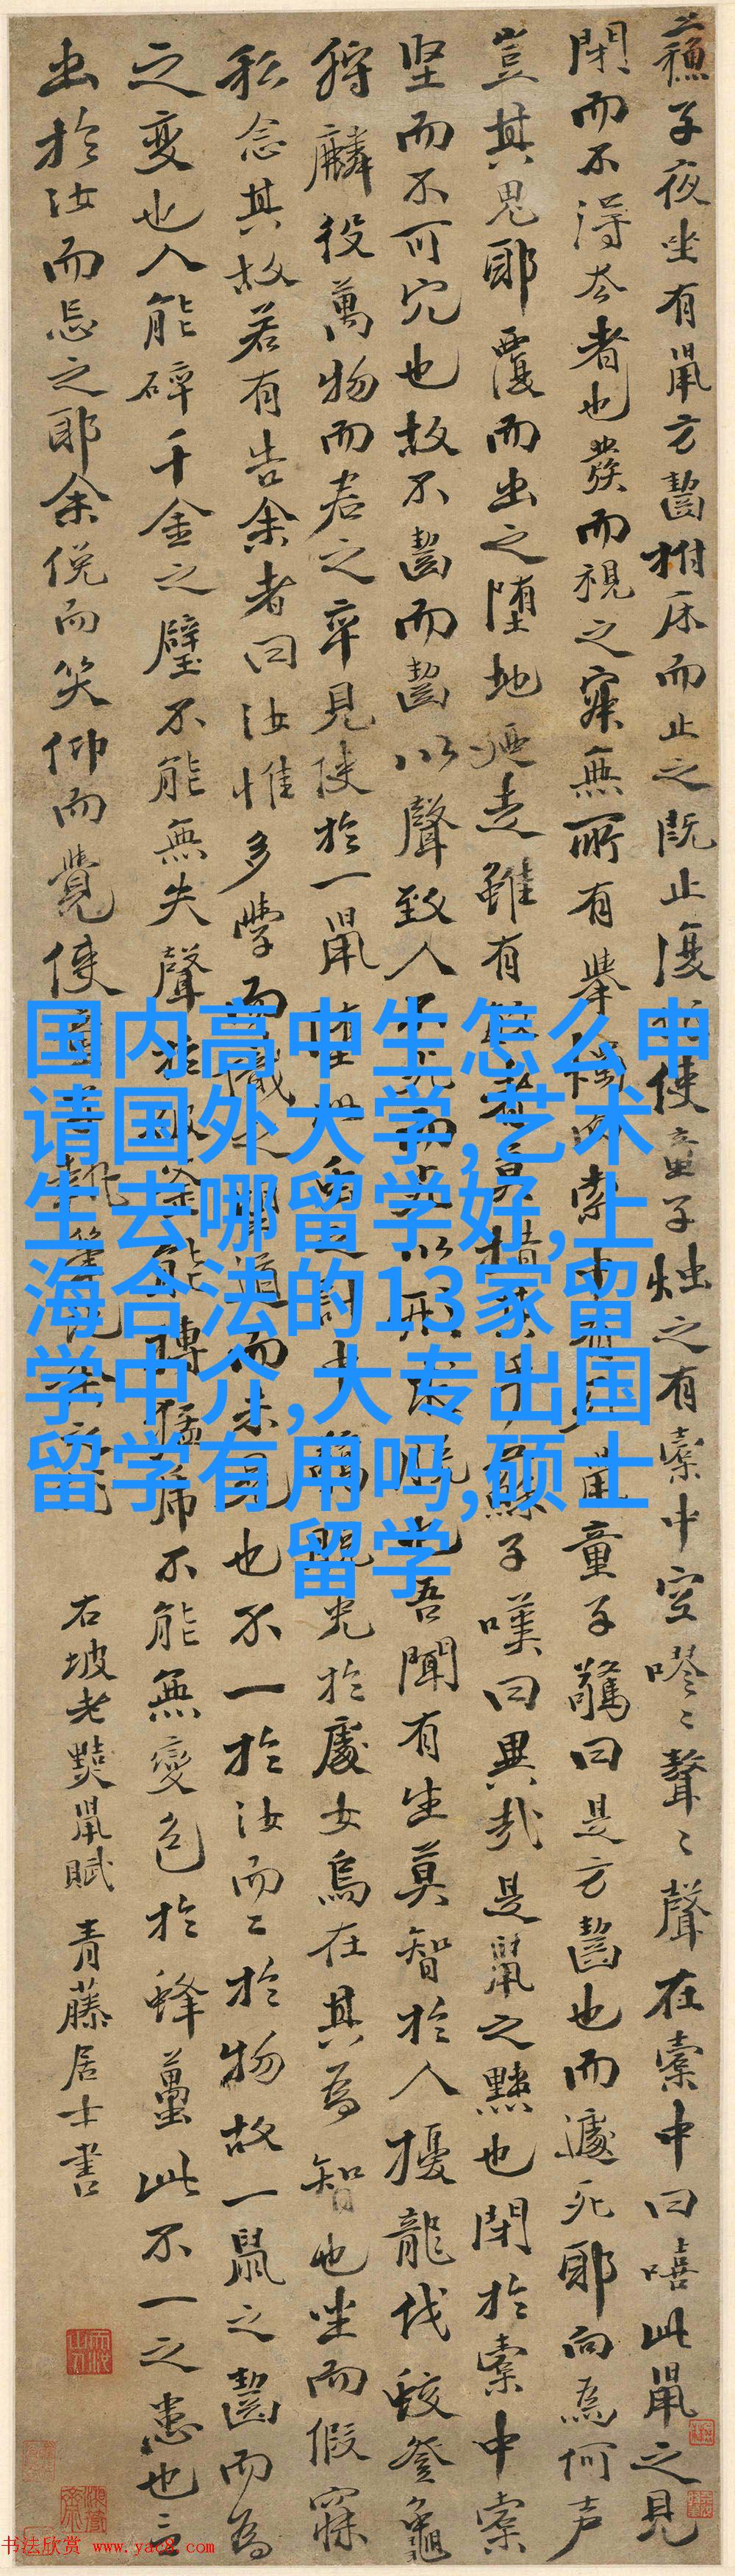 蘓子夜坐有鼠方齧拊床而止之既止復使童子燭之有橐中空嘐〻聱〻聲在橐中曰嘻此鼠之見
閉而不得去者也發而視之寂無所有舉燭而索中有死鼠童子驚曰是方齧也而遽死耶向為何声
豈其鬼耶覆而出之墮地迺走雖有敏者莫措其手蘇子嘆曰異哉是鼠之黠也閉於橐中橐
堅而不可穴也故不齧而齧以聲致人不死而死以形求脫也吾聞有生莫智於人擾龍伐蛟登龜
狩麟役萬物而君之卒見使於一鼠墮此之計中脫兔於處女烏在其為智也坐而假寐
私念其故若有告余者曰汝惟多學而識之望道而未見也不一於汝而二於物故一鼠之齧而為
之變也人能碎千金之璧不能無失聲於破釜能搏猛虎不能無變色於蜂蠆此不一之患也言
出於汝而忘之耶余俛而笑仰而覺使童子執筆記余
右坡老黠鼠賦 青藤居士書
国内高中生怎么申
请国外大学,艺术
生去哪留学好,上
海合法的13家留
学中介,大专出国
留学有用吗,硕士
留学
书法欣赏 www.yac8.com